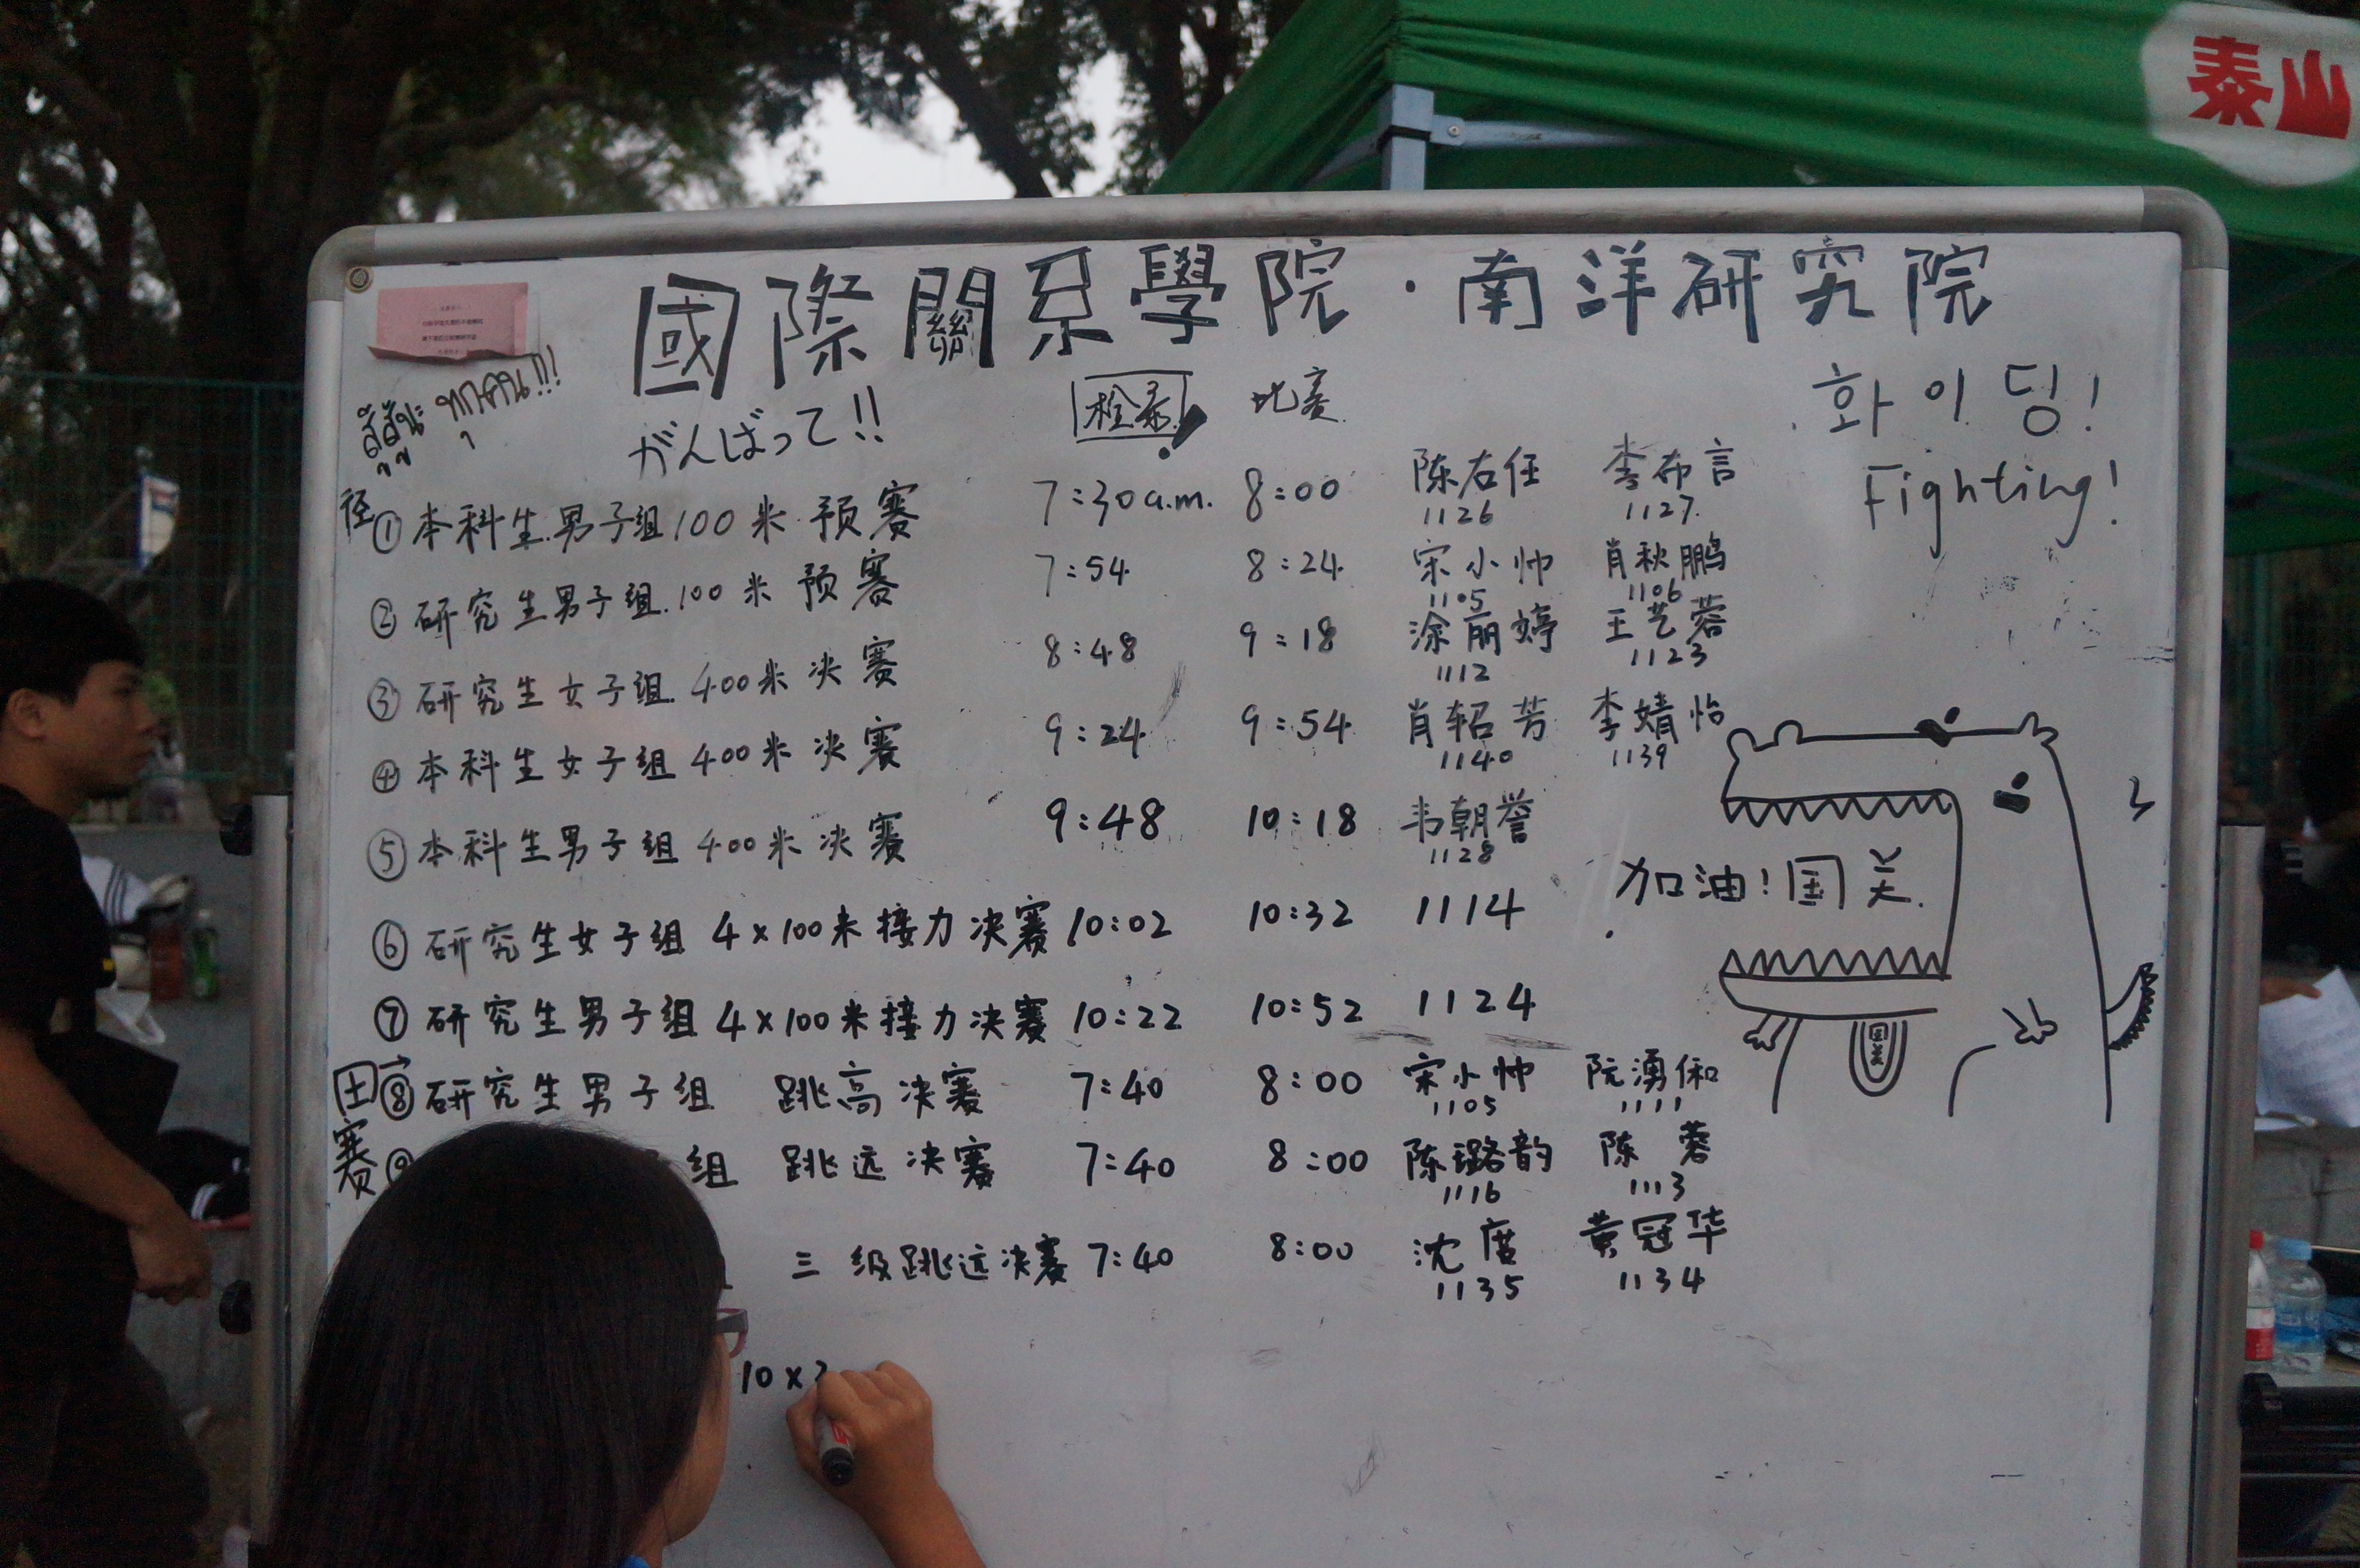 泰山
國際關系學院·南洋研究院
สู้สู้นะ ทุกคน!!!
がんばって!!
检录! 比赛
화이딩!
Fighting!
径
①本科生男子组100米预赛 7:30a.m. 8:00 陈右任 李布言
1126 1127
②研究生男子组100米预赛 7:54 8:24 宋小帅 肖秋鹏
1105 1106
③研究生女子组400米决赛 8:48 9:18 涂丽婷 王艺蓉
1112 1123
④本科生女子组400米决赛 9:24 9:54 肖轺芳 李婧怡
1140 1139
⑤本科生男子组400米决赛 9:48 10:18 韦朝誉
1128
加油!国关.
⑥研究生女子组4×100米接力决赛 10:02 10:32 1114
⑦研究生男子组4×100米接力决赛 10:22 10:52 1124
国关
田赛
⑧研究生男子组 跳高决赛 7:40 8:00 宋小帅 阮湧俰
1105 1111
⑨ 组 跳远决赛 7:40 8:00 陈璐韵 陈蓉
1116 1113
三级跳远决赛 7:40 8:00 沈度 黄冠华
1135 1134
10×